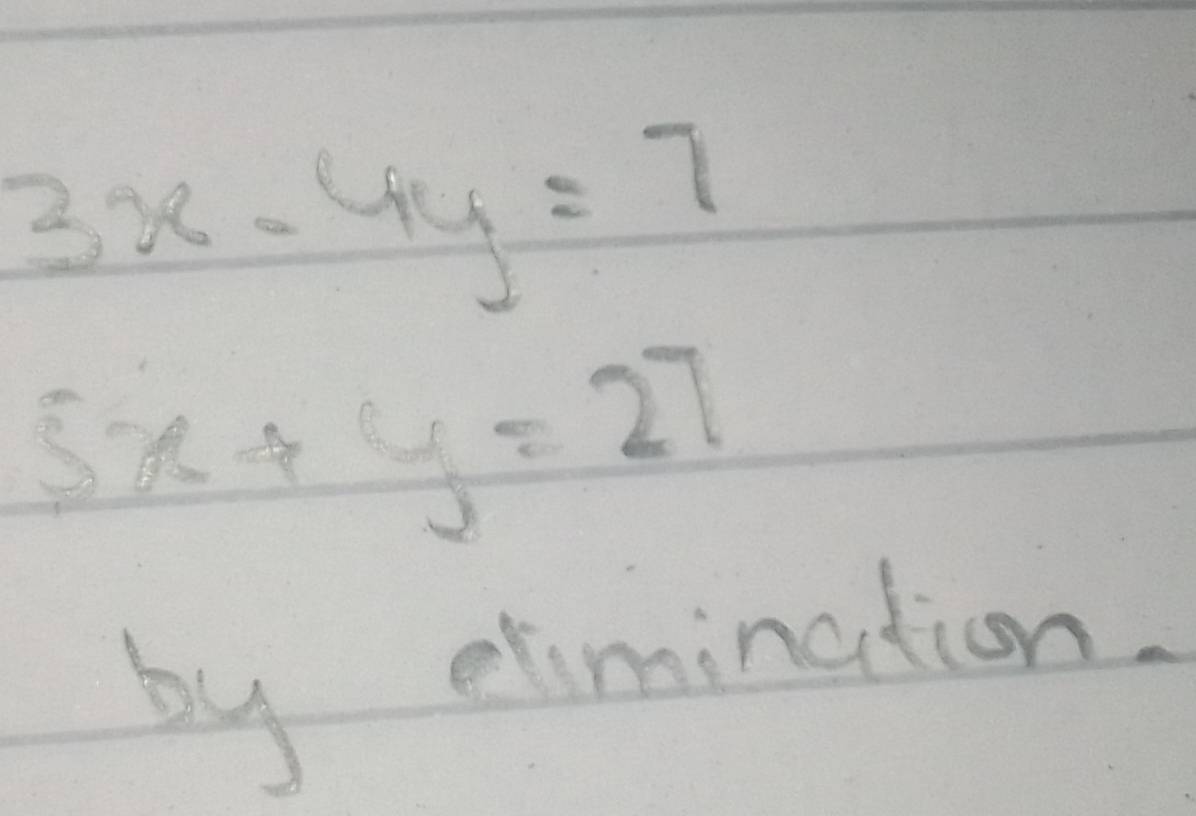 3x - 4y = 7
5x + y = 27
by elimination.